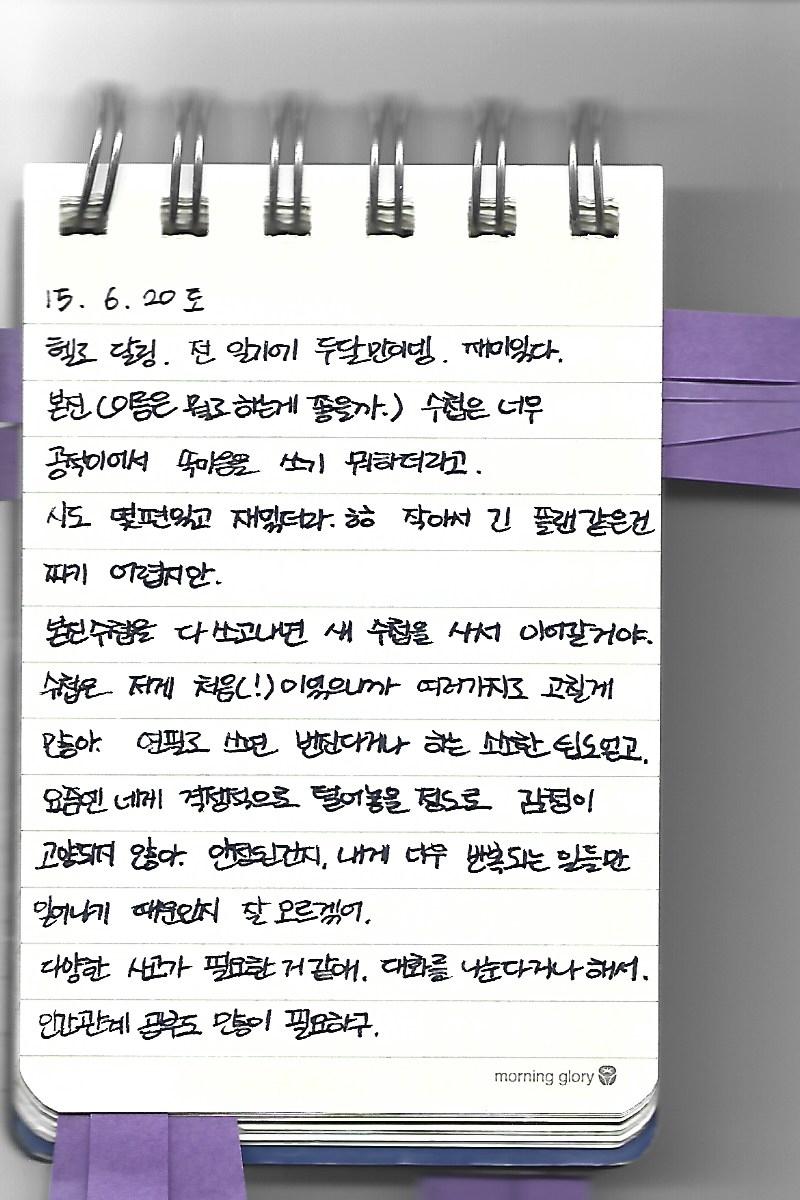 15. 6. 20 토
헬로 달링. 전 일기에 두달만이넹. 재미있다.
본진 (이름은 뭐로 하는게 좋을까.) 수첩은 너무
공적이어서 속마음을 쓰기 뭐하더라고.
시도 몇편있고 재밌더라. ㅎㅎ 작아서 긴 플랜 같은건
짜기 어렵지만.
본진수첩을 다 쓰고나면 새 수첩을 사서 이어갈거야.
수첩은 저게 처음(!)이었으니까 여러가지로 고칠게
많아. 연필로 쓰면 번진다거나 하는 소소한 팁도얻고.
요즘엔 네게 걱정적으로 털어놓을 정도로 감정이
고양되지 않아. 안정된건지, 내게 너무 반복되는 일들만
일어나기 때문인지 잘 모르겠어.
다양한 사고가 필요한 거 같애. 대화를 나눈다거나 해서.
인간관계 공부도 많이 필요하구.
morning glory